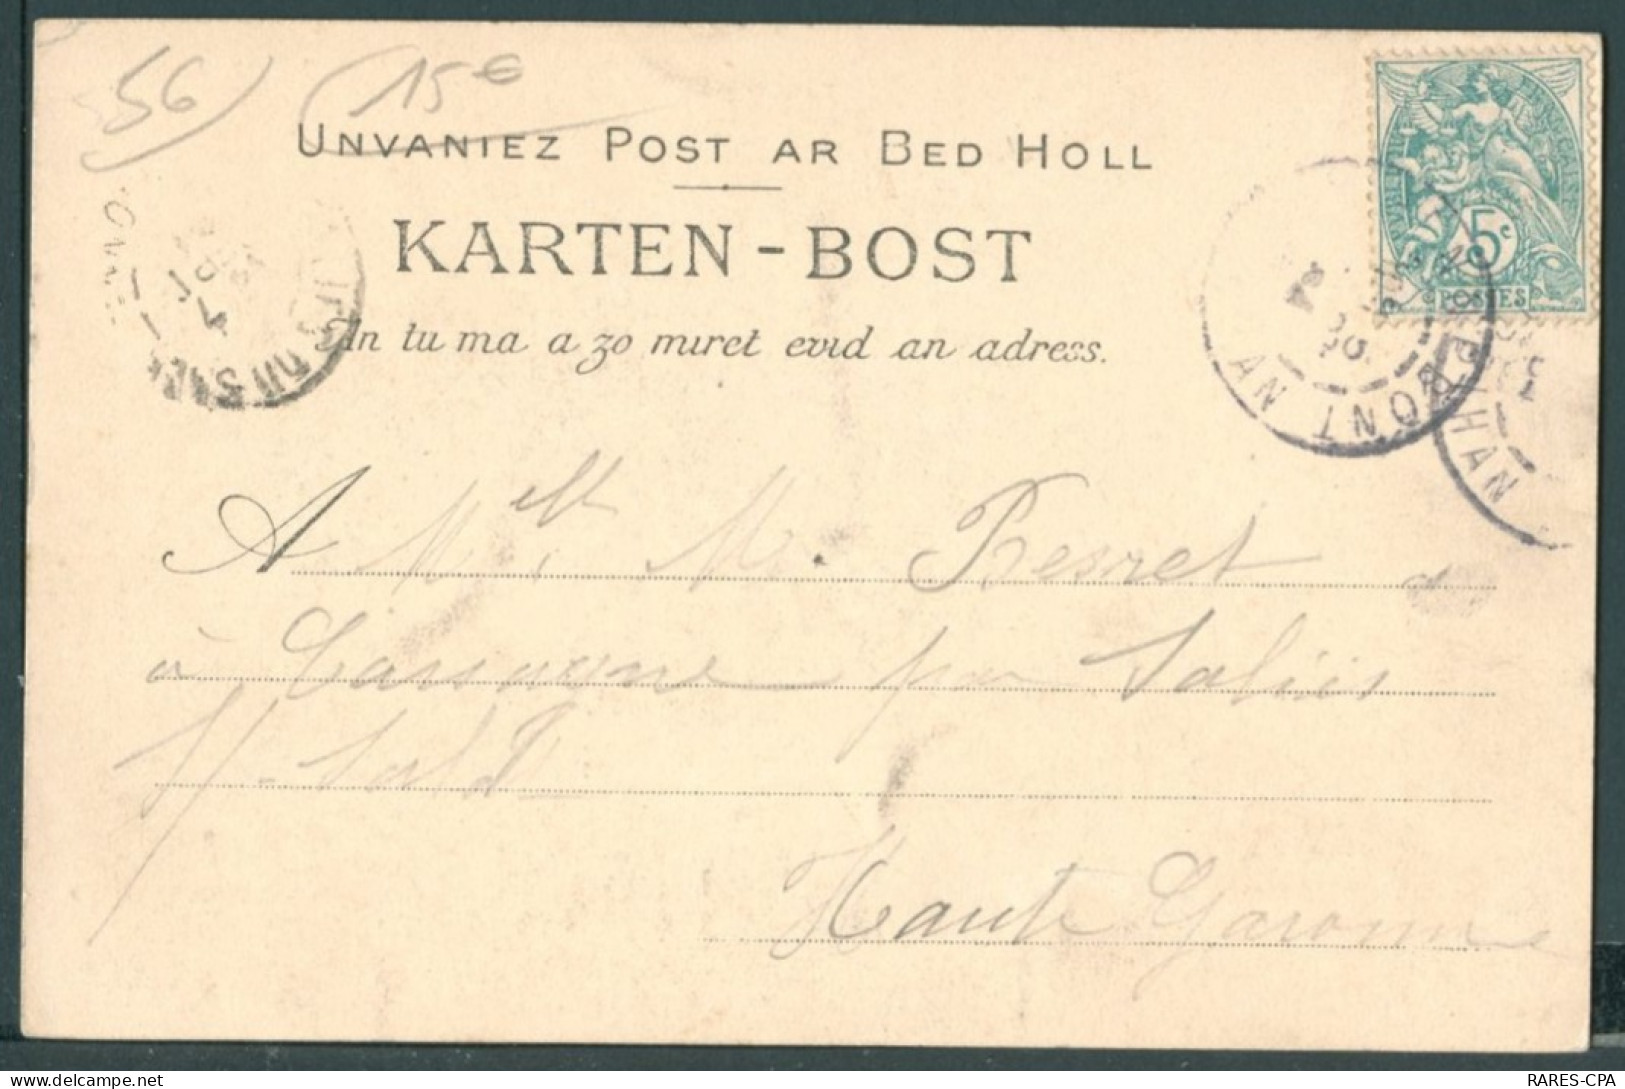 56
15€
UNVANIEZ POST AR BED HOLL
KARTEN-BOST
An tu ma a zo miret evid an adress.
5c
POSTES
PONT AN
MORBIHAN
A Melle M.
à Cassagne par Salies
s/-Salat
Haute Garonne
RARES-CPA